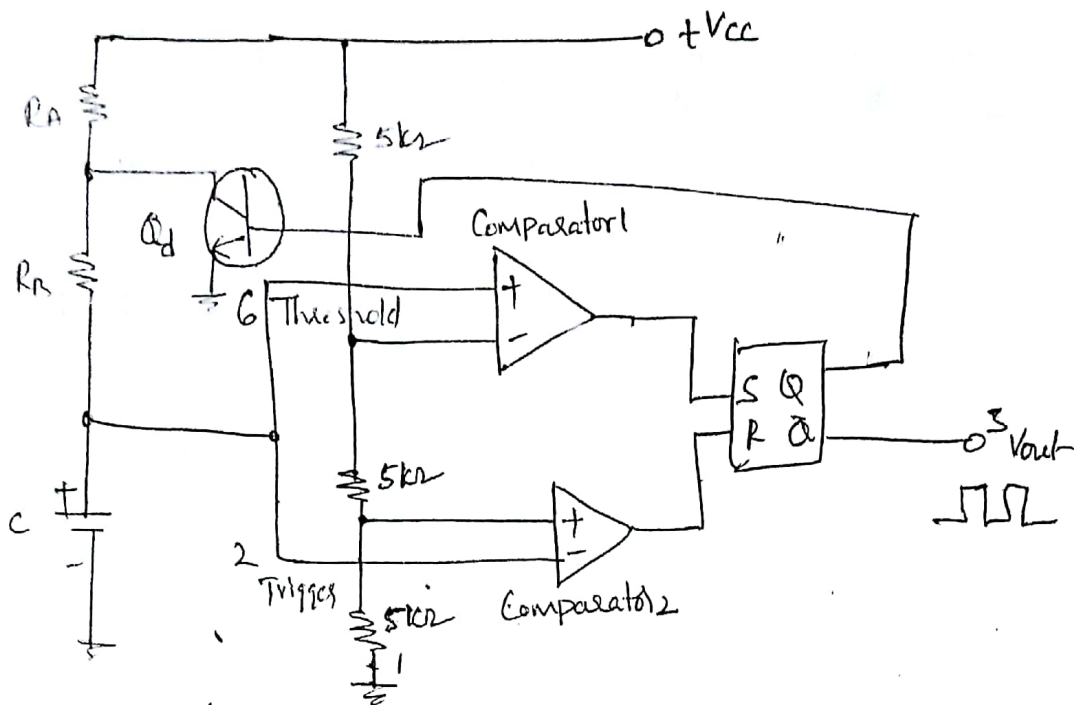 +Vcc
RA
5kΩ
Qd
Comparator1
+
-
RB
6 Threshold
S Q
R Q̅
3 Vout
5kΩ
+
-
C
+
-
2 Trigger
Comparator2
5kΩ
1